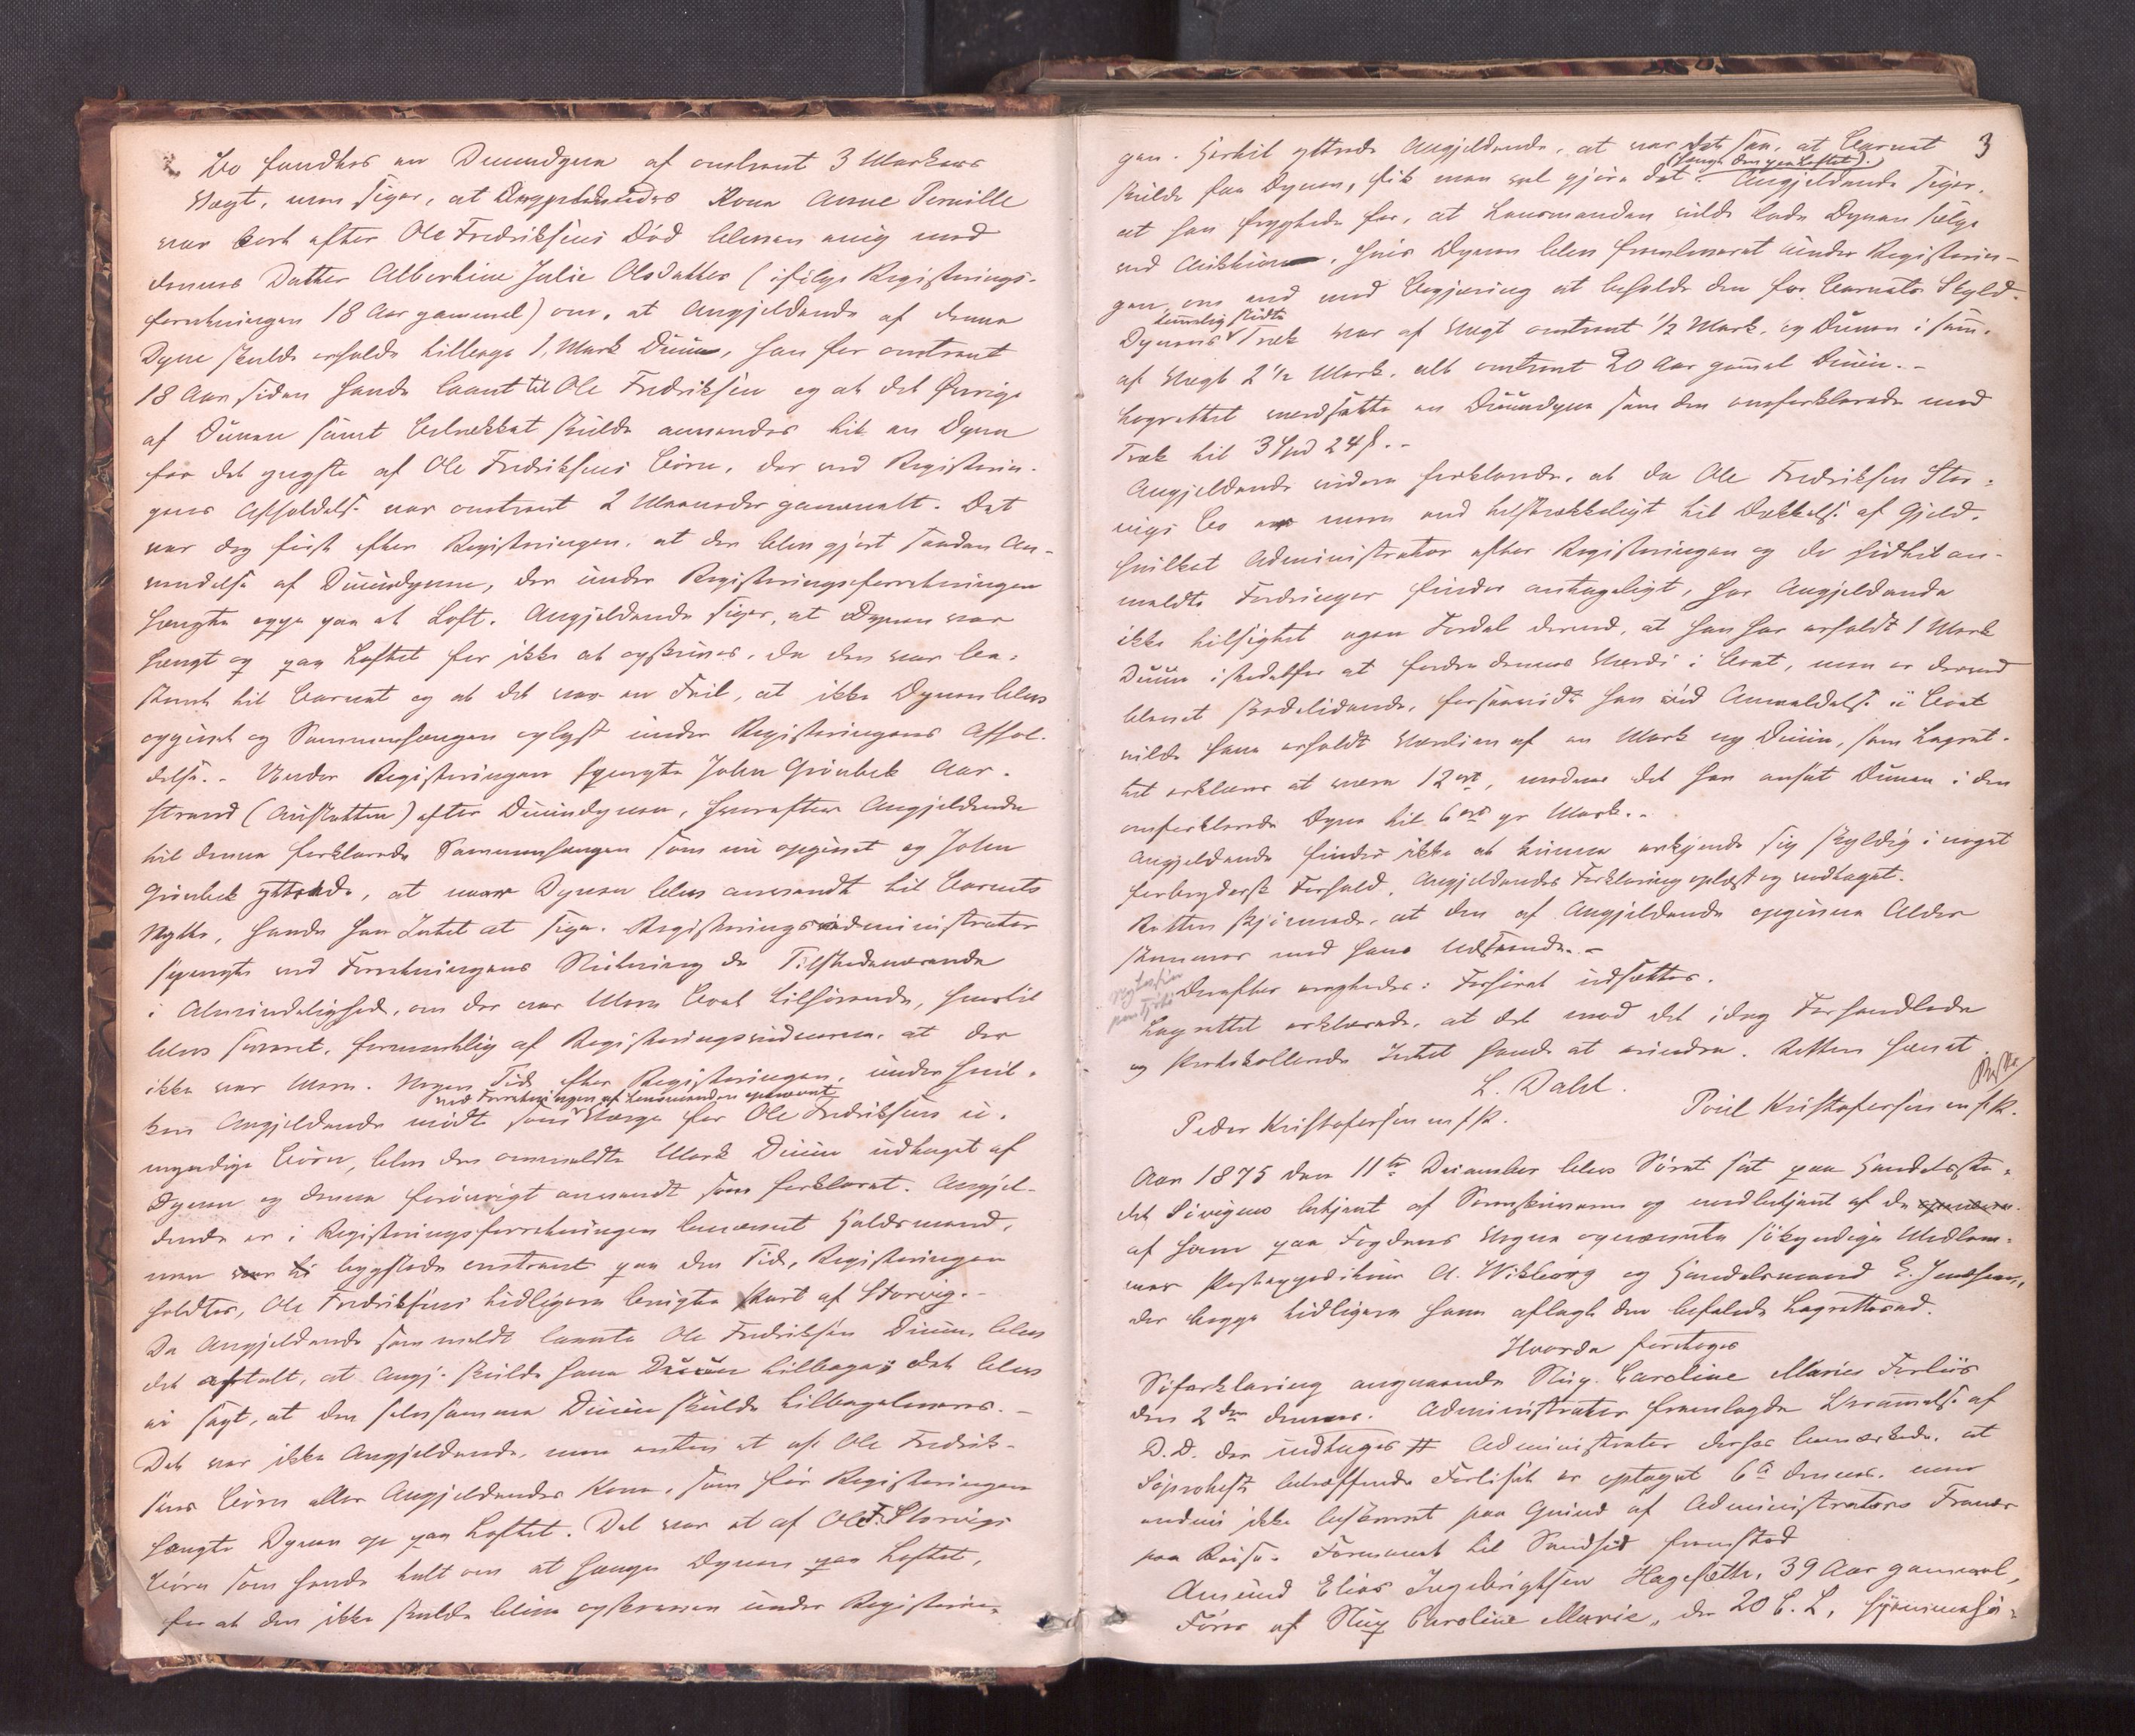 Bo fandtes en Duundyne af omtrent 3 Markers
Vægt, men siger, at Angjeldendes Kone Anne Pernille
var kort efter Ole Fredriksens Död bleven enig med
dennes Datter Albertine Julie Olsdatter (ifölge Registrerings-
forretningen 18 Aar gammel) om, at Angjeldende af denne
Dyne skulde erholde tilbage 1 Mark Duun, han for omtrent
18 Aar siden havde laant til Ole Fredriksen og at det Övrige
af Dunen samt Betrækket skulde anvendes til en Dyne
for det yngste af Ole Fredriksens Börn, der ved Registerin-
gens Afholdelse var omtrent 2 Maaneder gammelt. Det
var dog först efter Registeringen, at der blev gjort saadan An-
vendelse af Duundynen, der under Registeringsforretningen
hængte oppe paa et Loft. Angjeldende siger, at Dynen var
hængt op paa Loftet for ikke at opskrives, da den var be-
stemt til Barnet og at det var en Feil, at ikke Dynen blev
opgivet og Sammenhængen oplyst under Registeringens Afhol-
delse. - Under Registeringen spurgte John Grönbek Aar-
strand () efter Duundynen, hvorefter Angjeldende
til denne forklarede Sammenhængen som nu opgivet og John
Grönbek yttrede, at naar Dynen blev anvendt til Barnets
Nytte, havde han Intet at sige. Registreringsadministrator
spurgte ved Forretningens Slutning de Tilstedeværende
i Almindelighed, om der var Mere Boet tilhörende, hvortil
blev svaret, formentlig af Registeringsvidnerne, at der
ikke var Mere. Nogen Tid efter Registeringen, under hvil-
ved Forretningen af Lensmanden opnævnt
ken Angjeldende mödte som Værge for Ole Fredriksens u-
myndige Börn, blev den ommeldte Mark Duun udtaget af
Dynen og denne foröurigt anvendt som forklaret. Angjel-
dende er i Registeringsforretningen benævnet Gaardmand,
men bygslede omtrent paa den Tid, Registeringen
holdtes, Ole Fredriksens tidligere brugte Part af Storvig. -
Da Angjeldende som meldt laante Ole Fredriksen Duun, blev
det aftalt, at Angj. skulde have Duun tilbage; det blev
ei sagt, at den selvsamme Duun skulde tilbageleveres. -
Det var ikke Angjeldende, men enten et af Ole Fredrik-
sens Börn eller Angjeldendes Kone, som för Registeringen
hængte Dynen op paa Loftet. Det var et af Ole F. Storvigs
Börn som havde talt om at hænge Dynen paa Loftet,
for at den ikke skulde blive opskreven under Registerin-
3
gen. Hertil yttrede Angjeldende, at var det saa, at Barnet
(hængt den paa Loftet).
skulde faa Dynen, fik man vel gjöre det. Angjeldende siger,
at han frygtede for, at Lensmanden vilde lade Dynen sælge
ved Auktion, hvis Dynen blev fremleveret under Registerin-
gen, om end med Begjæring at beholde den for Barnets Skyld.
temmelig slidte
Dynens Træk var af Vægt omtrent ½ Mark, og Dunen i sam.
af Vægt 2½ Mark, alt omtrent 20 Aar gammel Duun. -
Lagrettet værdsatte en Duundyne som den omforklarede med
Træk til 3 Spd 24 ß. -
Angjeldende videre forklarede, at da Ole Fredriksen Stor-
vigs Bo er mere end tilstrækkeligt til Dækkelse af Gjeld,
hvilket Administrator efter Registeringen og de hidtil an-
meldte Fordringer finder antageligt, har Angjeldende
ikke tilsigtet egen Fordel derved, at han har erholdt 1 Mark
Duun istedetfor at fordre dennes Værdi i Boet, men er derved
blevet skadelidende, forsaavidt han ved Anmeldelse i Boet
vilde have erholdt Værdien af en Mark ny Duun, som Lagret-
tet erklærer at være 12 ort, medens det har ansat Dunen i den
omforklarede Dyne til 6 ort pr Mark. -
Angjeldende finder ikke at kunne erkjende sig skyldig i noget
forbrydersk Forhold. Angjeldendes Forklaring oplæst og vedtaget.
Retten skjönnede, at den af Angjeldende opgivne Alder
stemmer med hans Udseende. -
Derefter eragtedes: Forhöret udsættes.
Lagrettet erklærede, at det mod det idag Forhandlede
og Protokollerede Intet havde at erindre. Retten hævet
L. Dahl.
Peder Kristofersen m/P. Poul Kristofersen m/P.
Aar 1875 den 11te December blev Söret sat paa Handelsste-
det Sövigen betjent af Sorenskriveren og medbetjent af de
af ham paa Fogdens Vegne opnævnte sökyndige Medlem-
mer Postexpeditör A. Wikborg og Handelsmand E. Jensen,
der begge tidligere have aflagt den befalede Lagretteed.
Hvorda foretoges
Söforklaring angaaende Slup. Caroline Maries Forliis
den 2den dennes. Administrator fremlagde Berammelse af
D. D. der indtages # Administrator derhos bemærkede, at
Söprotest betræffende Forliset er optaget 6te dennes, men
endnu ikke beskrevet paa Grund af Administrators Fravær
paa Reise. Foreneevnt til fremstod
Amund Elias Ingebrigtsen Hagesæther, 39 Aar gammel,
Förer af Slup Caroline Marie, dr 20 C. L, hjemmehö-